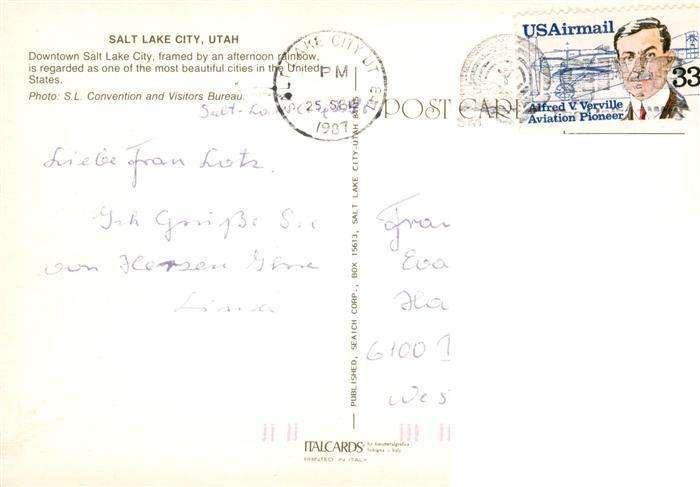 SALT LAKE CITY, UTAH
Downtown Salt Lake City, framed by an afternoon rainbow,
is regarded as one of the most beautiful cities in the United
States.
Photo: S.L. Convention and Visitors Bureau.
SALT LAKE CITY UT 841
PM
25 SEP
1987
POST CARD
USAirmail
33
Alfred V. Verville
Aviation Pioneer
Salt-Lake
Liebe Frau Lotz.
Ich Grüße Sie
von Herzen Ihre
Linda
PUBLISHED, SEAICH CORP., BOX 15613, SALT LAKE CITY-UTAH
Frau
Eva
6100
Wes
ITALCARDS
Bologna - Italy
PRINTED IN ITALY